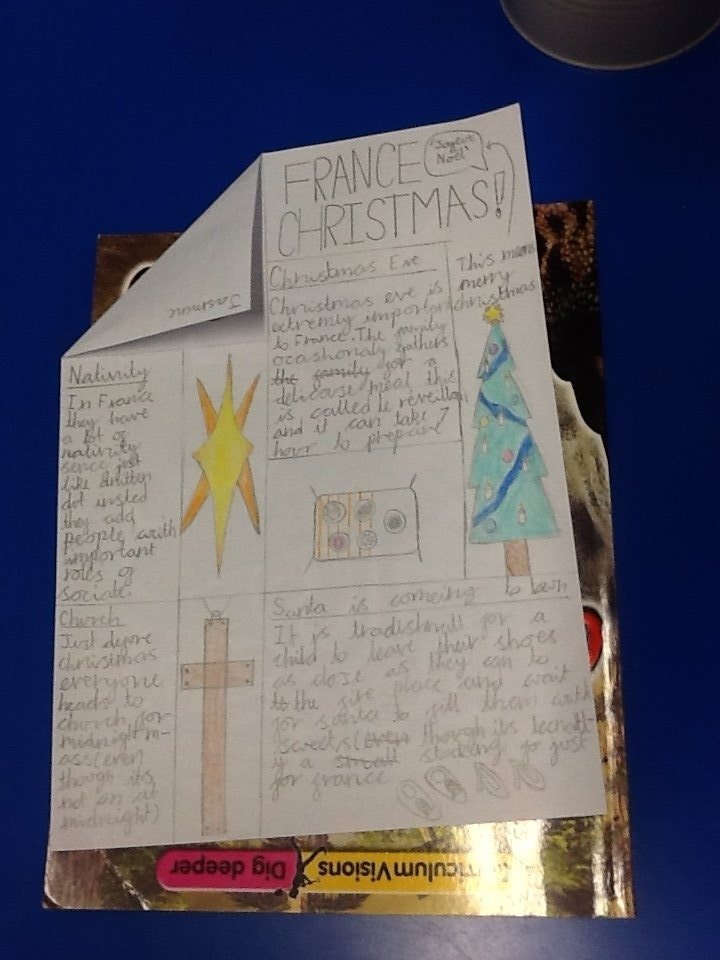 FRANCE
CHRISTMAS!
"Joyeux
Noel"
This means
merry
christmas
Jasmine
Christmas Eve
Christmas eve is
extremly important
to France. The family
ocasionaly gathers
the family for a
deliciouse meal this
is called le réveillon
and it can take 7
hour to prepare
Nativity
In France
they have
a lot of
nativity
sence just
like Britten
dot insted
they add
people with
important
roles of
sociate.
Church
Just before
christmas
everyone
heads to
church for
midnight m-
ass(even
though its
not on at
midnight)
Santa is comeing to town
It is tradishnall for a
child to leave their shoes
as close as they can to
the fire place and wait
for santa to fill them with
sweets(even though its tecnatl-
y a small stocking so just
for france
CurriculumVisions
Dig deeper